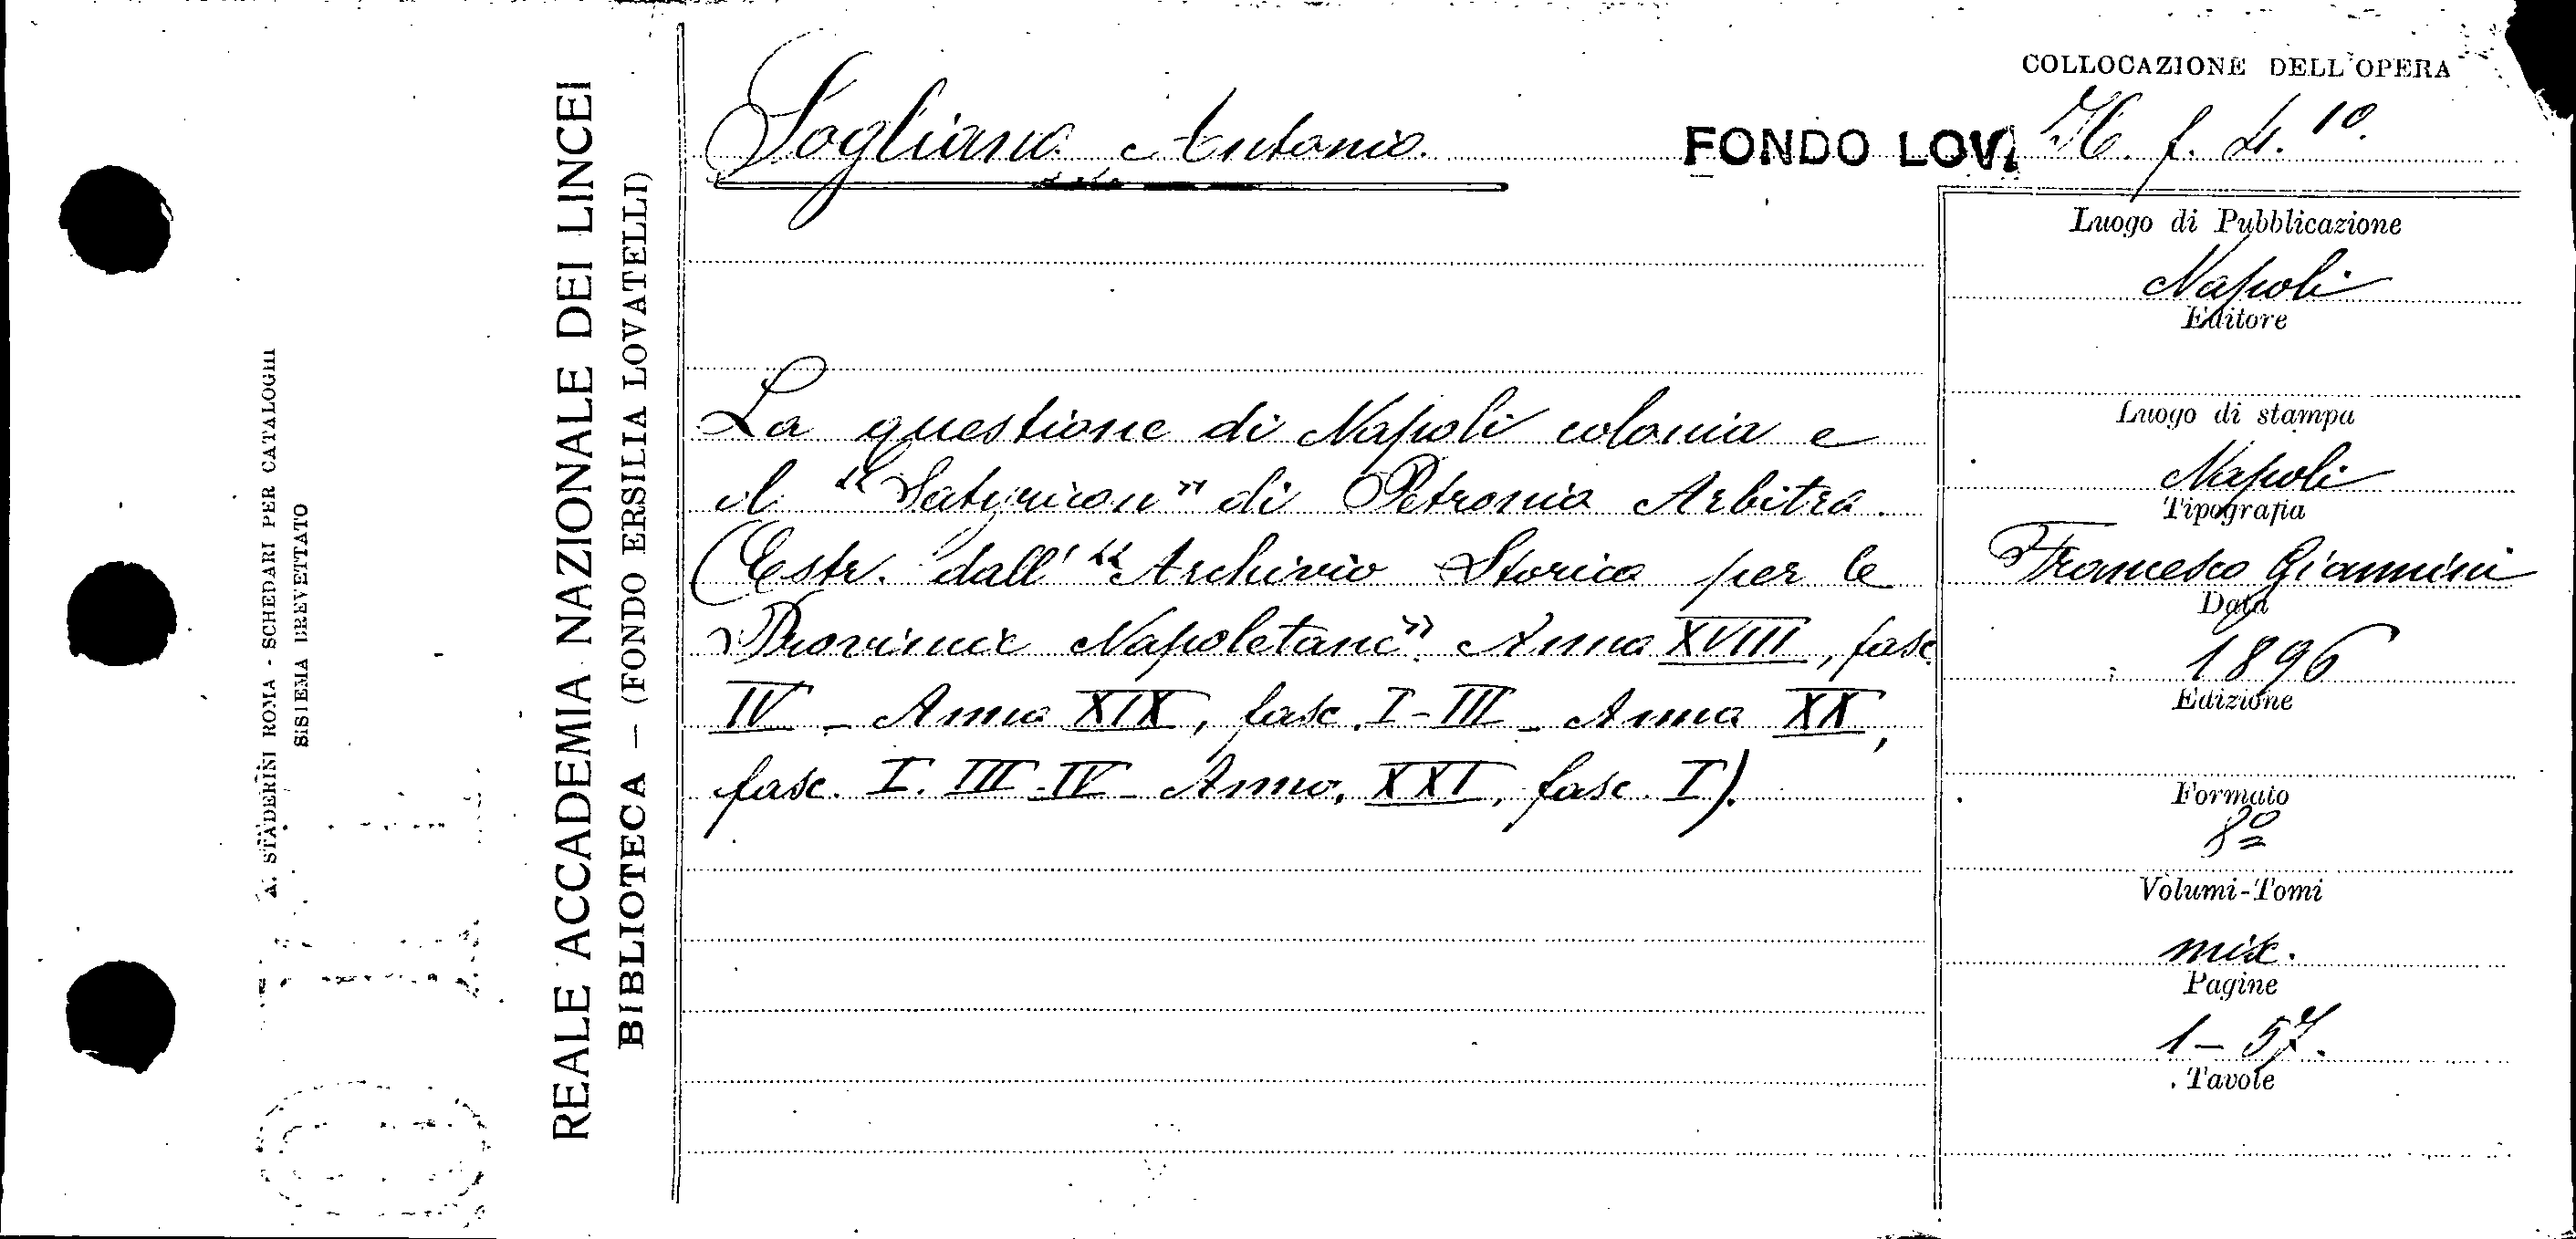 A. STADERINI ROMA - SCHEDARI PER CATALOGHI
SISTEMA BREVETTATO
REALE ACCADEMIA NAZIONALE DEI LINCEI
BIBLIOTECA — (FONDO ERSILIA LOVATELLI)
Sogliano Antonio.
La questione di Napoli colonia e
il "Satyricon" di Petronio Arbitro.
(Estr. dall' "Archivio Storico per le
Provincie Napoletane". Anno XVIII, fasc.
IV - Anno XIX, fasc. I-III - Anno XX,
fasc. I. III-IV - Anno, XXI, fasc. I).
COLLOCAZIONE DELL'OPERA
FONDO LOV
f. 4. 10.
Luogo di Pubblicazione
Napoli
Editore
Luogo di stampa
Napoli
Tipografia
Francesco Giannini
Data
1896
Edizione
Formato
8º
Volumi-Tomi
misc.
Pagine
1-57.
Tavole